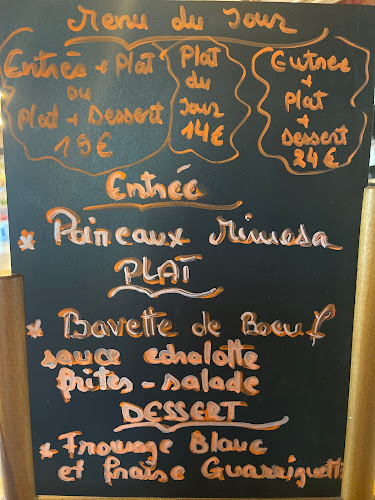 Menu du Jour
Entrée + Plat
ou
Plat + Dessert
19€
Plat
du
Jour
14€
Entree
+
Plat
+
Dessert
24€
Entrée
* Poireaux Mimosa
PLAT
* Bavette de Boeuf
sauce echalotte
frites - salade
DESSERT
* Fromage Blanc
et fraise Guarriguette